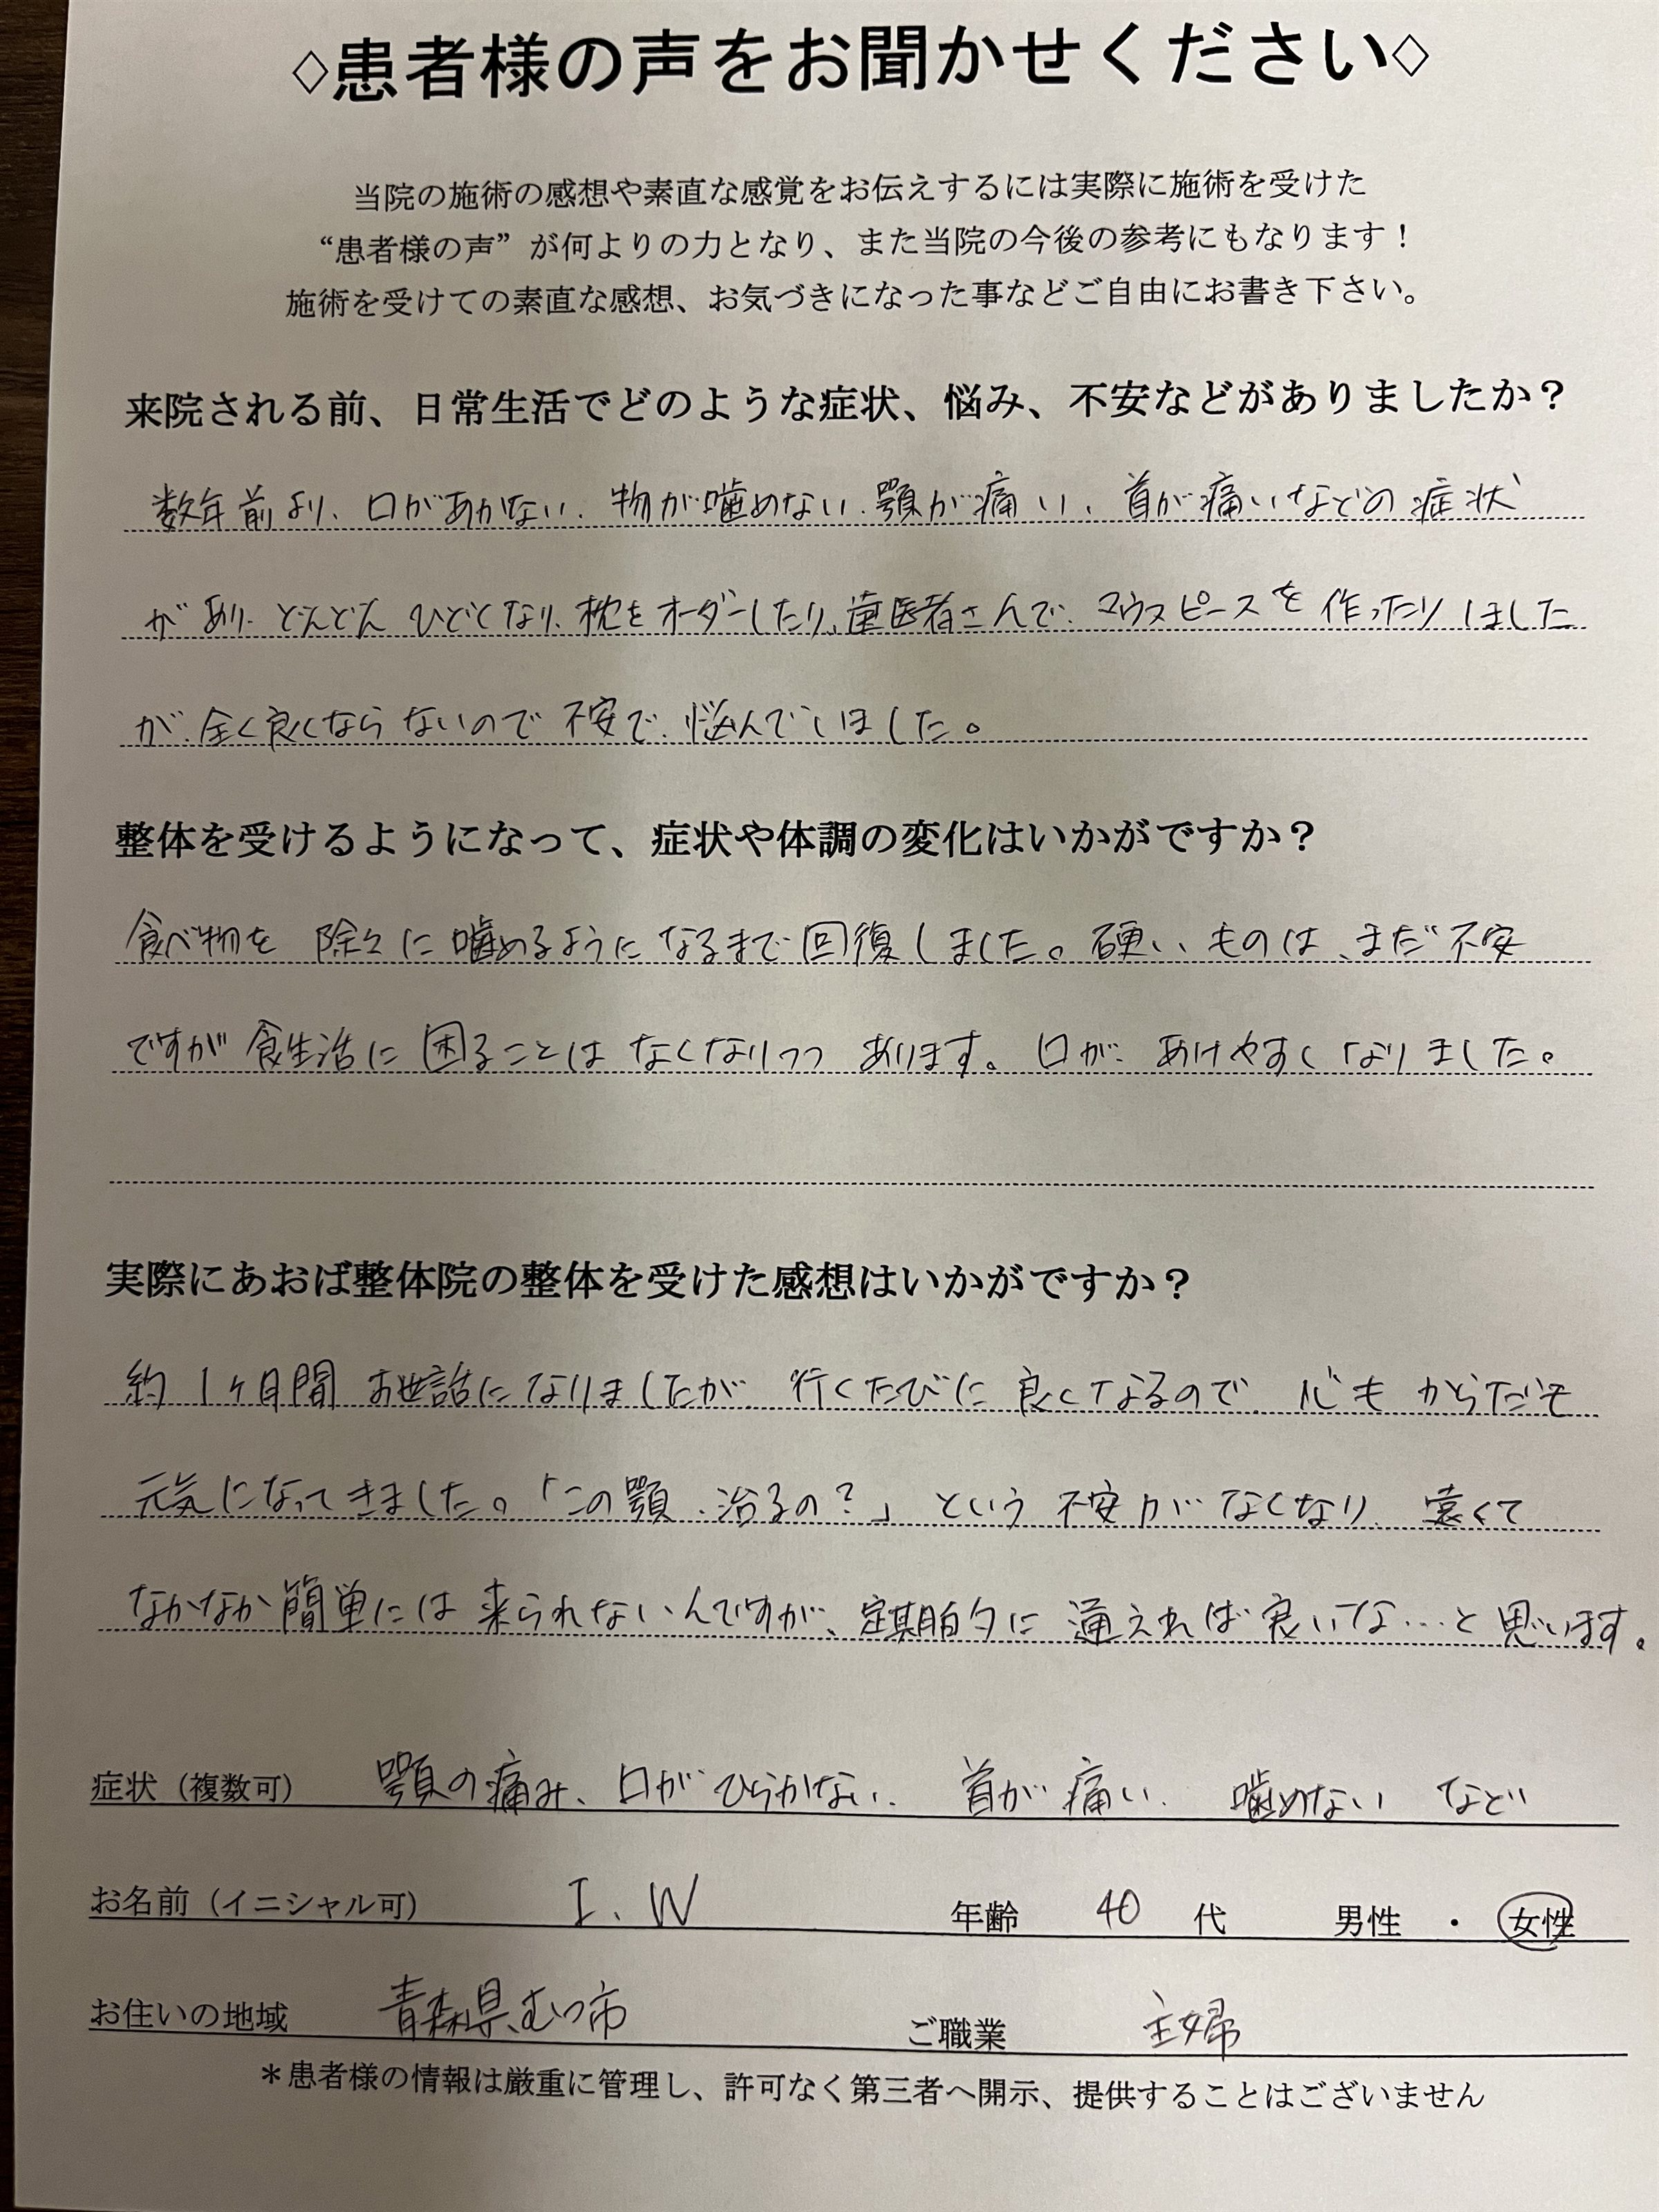 ◇患者様の声をお聞かせください◇
当院の施術の感想や素直な感覚をお伝えするには実際に施術を受けた
“患者様の声”が何よりの力となり、また当院の今後の参考にもなります！
施術を受けての素直な感想、お気づきになった事などご自由にお書き下さい。
来院される前、日常生活でどのような症状、悩み、不安などがありましたか？
数年前より、口があかない、物が噛めない、顎が痛い、首が痛いなどの症状
があり、どんどんひどくなり、枕をオーダーしたり、歯医者さんで、マウスピースを作ったりしました
が、全く良くならないので不安で、悩んでいました。
整体を受けるようになって、症状や体調の変化はいかがですか？
食べ物を除々に噛めるようになるまで回復しました。硬いものは、まだ不安
ですが食生活に困ることはなくなりつつあります。口が、あけやすくなりました。
実際にあおば整体院の整体を受けた感想はいかがですか？
約1ヶ月間お世話になりましたが、行くたびに良くなるので、心もからだも
元気になってきました。「この顎、治るの？」という不安がなくなり、遠くて
なかなか簡単には来られないんですが、定期的に通えれば良いな…と思います。
症状（複数可） 顎の痛み、口がひらかない、首が痛い、噛めない など
お名前（イニシャル可） I.W 年齢 40 代 男性 ・ 女性
お住いの地域 青森県むつ市 ご職業 主婦
＊患者様の情報は厳重に管理し、許可なく第三者へ開示、提供することはございません